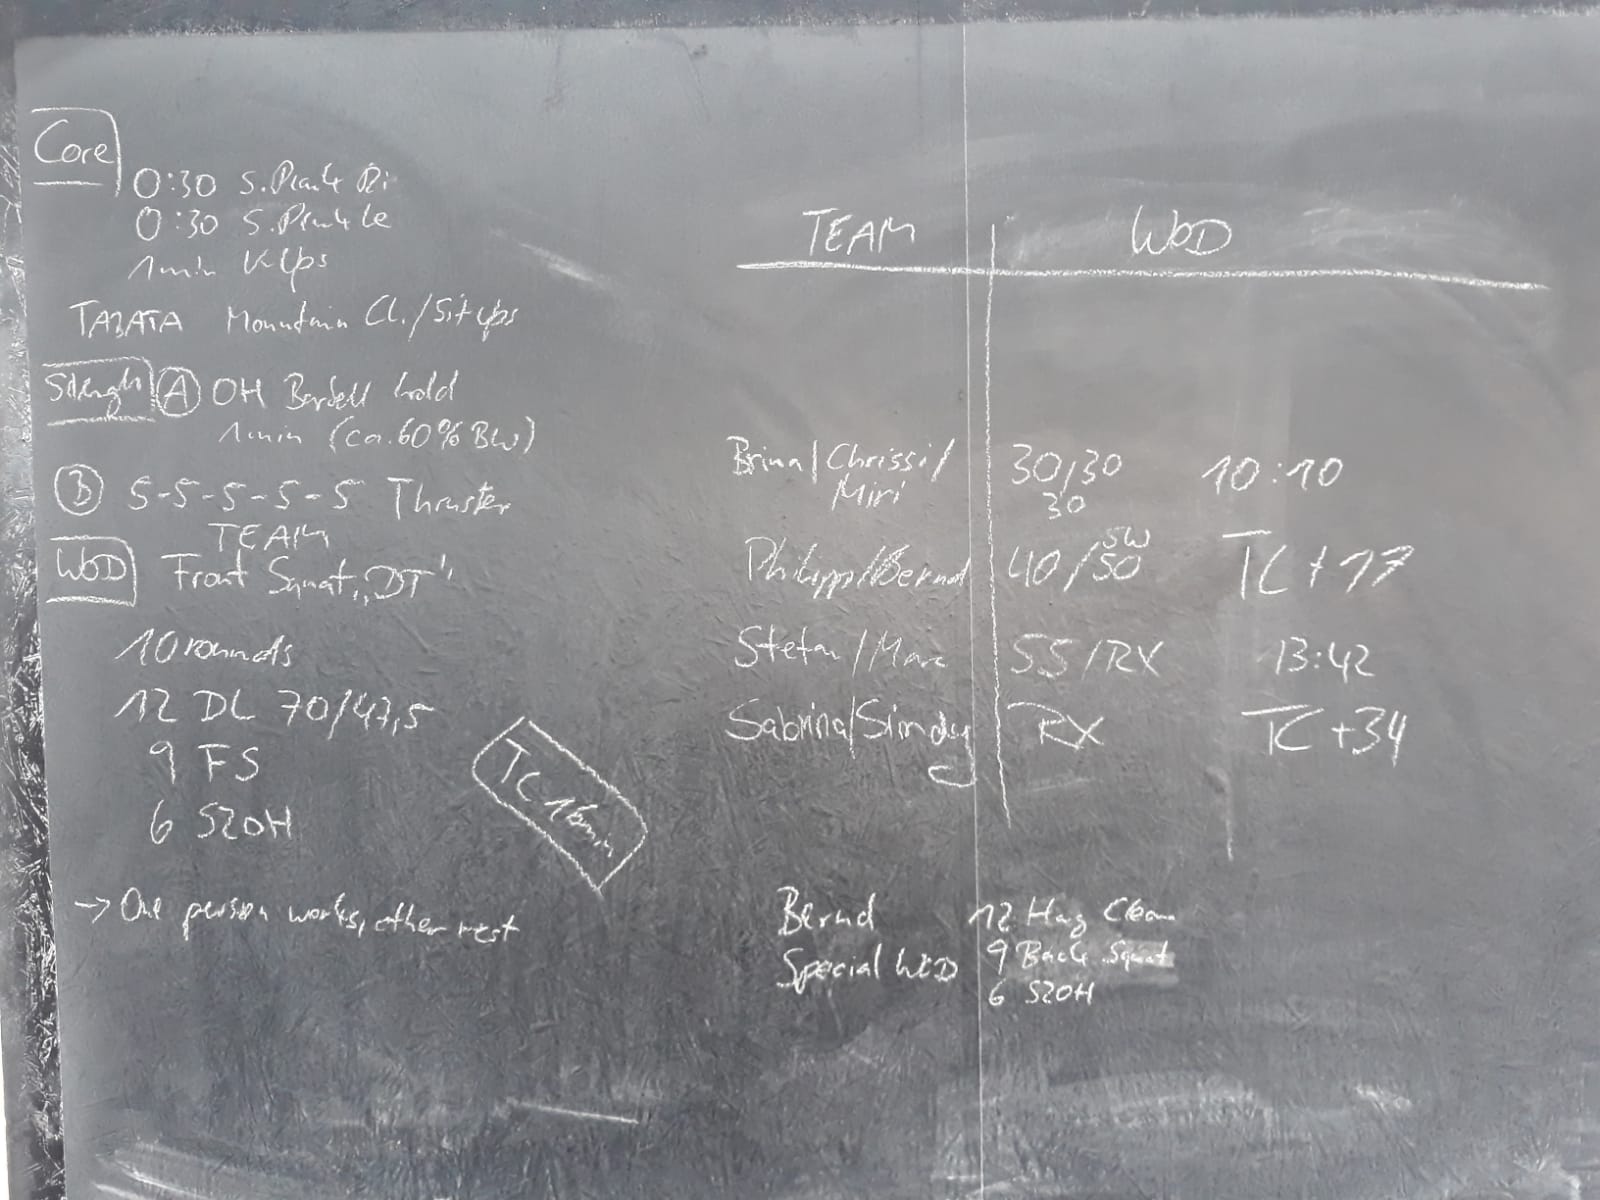 Core
0:30 S. Plank Ri
0:30 S. Plank Le
1min V-Ups
TABATA Mountain Cl./Situps
Strength (A) OH Barbell hold
1min (ca. 60% BW)
(B) 5-5-5-5-5 Thruster
TEAM
WOD Front Squat „DT"
10 rounds
12 DL 70/47,5
9 FS
6 S2OH
TC 16min
-> One person works, other rest
TEAM WOD
Brina/Chrissi/ 30/30 10:10
Miri 30
SW
Philipp/Bernd 40/50 TC+17
Stefan/Marc 55/RX 13:42
Sabrina/Simdy RX TC+34
Bernd 12 Hang Clean
Special WOD 9 Back Squat
6 S2OH